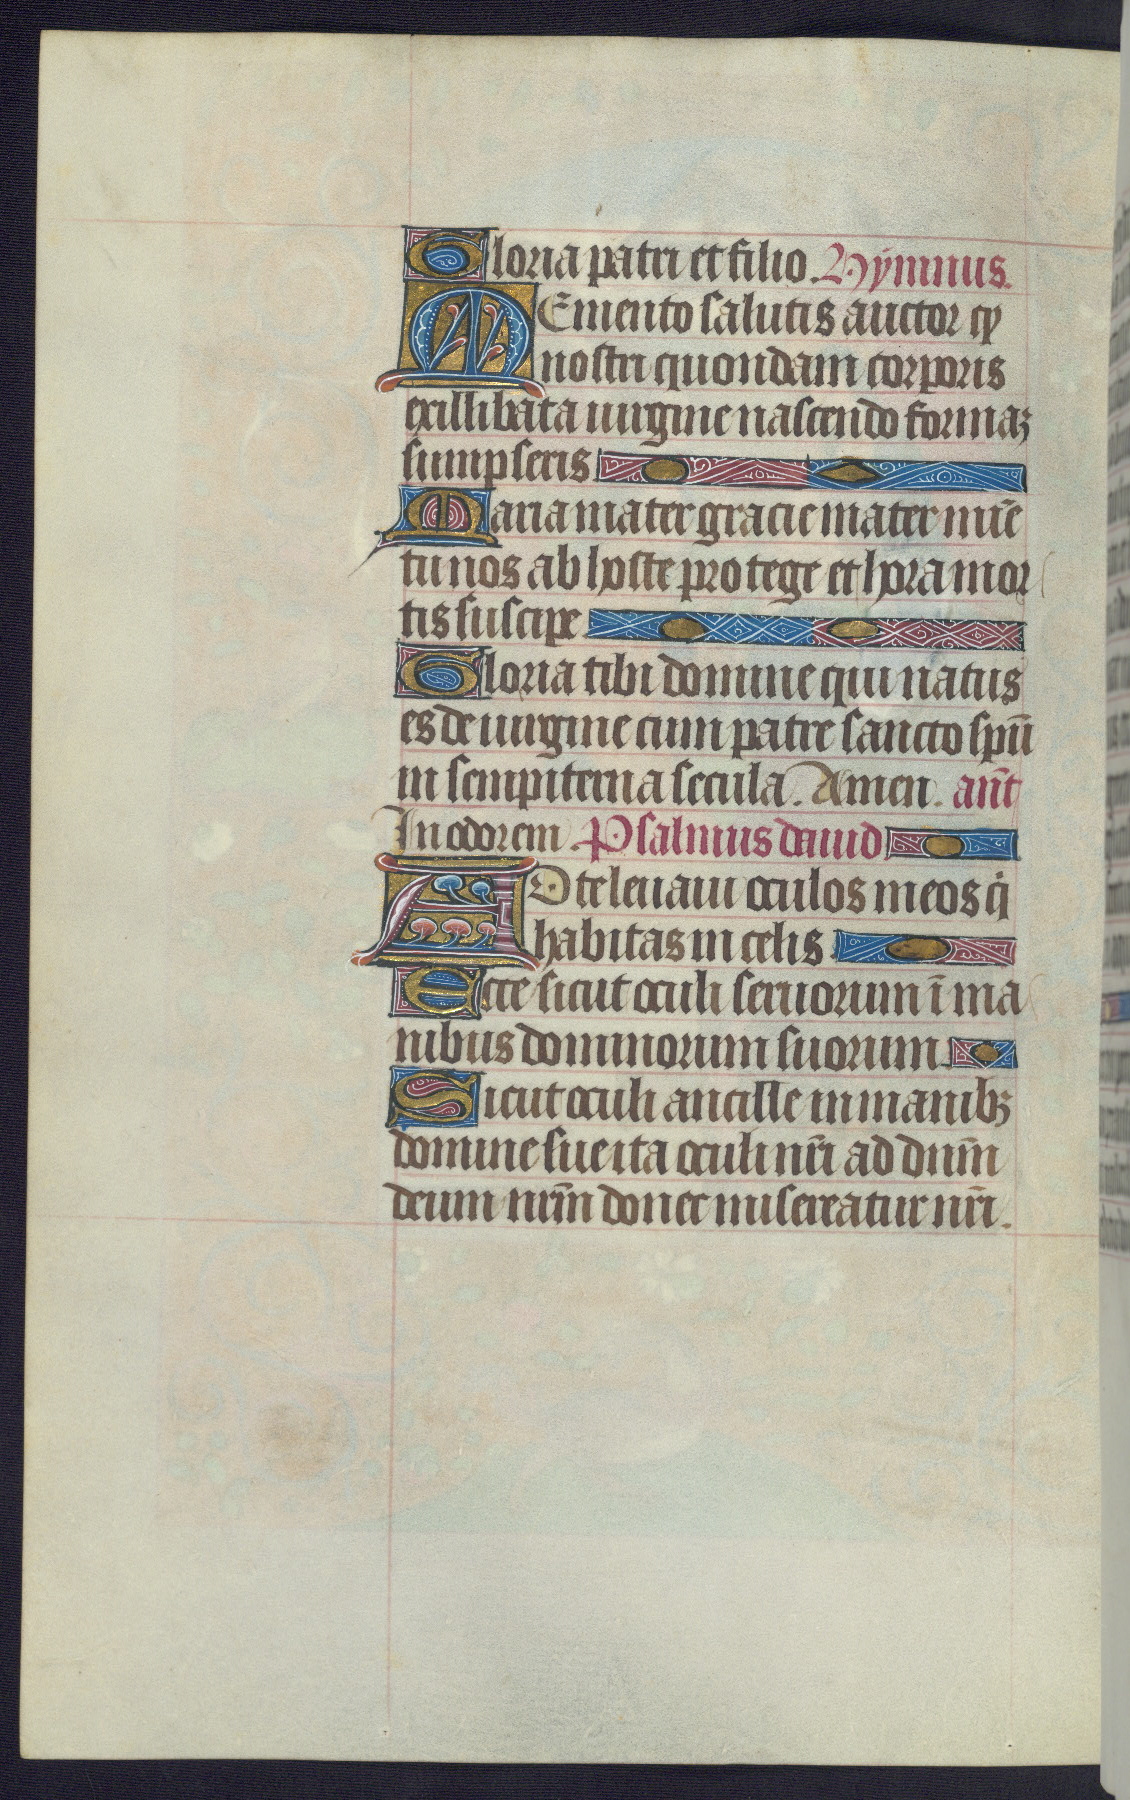 Gloria patri et filio. Hẏmnus.
MEmento salutis auctor qꝫ
nostri quondam corporis
exillibata uirgine nascendo formaꝫ
sumpseris
Maria mater gracie mater mīe
tu nos ab hoste protege et hora mor
tis suscipe
Gloria tibi domine qui natus
es de uirgine cum patre sancto spū
in sempiterna secula. Amen. ant̄
In odorem. Psalmus dauid
AD te leuaui oculos meos qi
habitas in celis
Ecce sicut oculi seruorum ī ma
nibus dominorum suorum
Sicut oculi ancille in manibꝫ
domine sue ita oculi nr̄i ad dn̄m
deum nr̄m donec misereatur nr̄i.